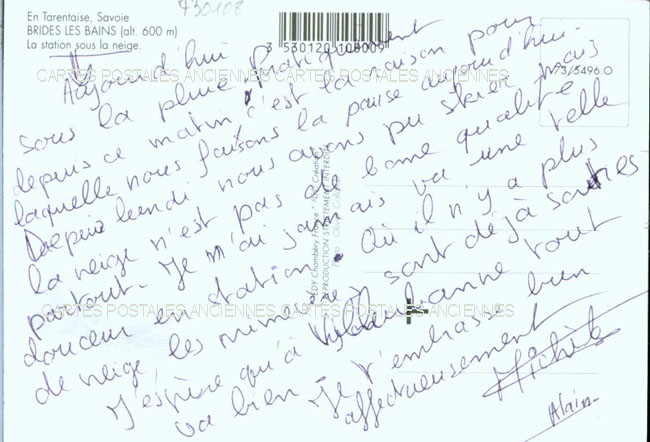 730108
En Tarentaise, Savoie
BRIDES LES BAINS (alt. 600 m)
La station sous la neige.
3 530120 108009
N/73/5496.O
CARTES POSTALES ANCIENNES CARTES POSTALES ANCIENNES
Aujourd'hui
sous la pluie pratiquement
depuis ce matin, c'est la raison pour
laquelle nous faisons la pause aujourd'hui
Depuis lundi nous avons pu skier mais
la neige n'est pas de bonne qualité
partout. Je n'ai jamais vu une telle
douceur en station. Où il n'y a plus
de neige les sont déjà sorties
J'espère qu'à tout
va bien. Je t'embrasse bien
affectueusement
Michèle
Alain
EDY Chambéry France
REPRODUCTION STRICTEMENT INTERDITE
CARTES POSTALES ANCIENNES CARTES POSTALES ANCIENNES